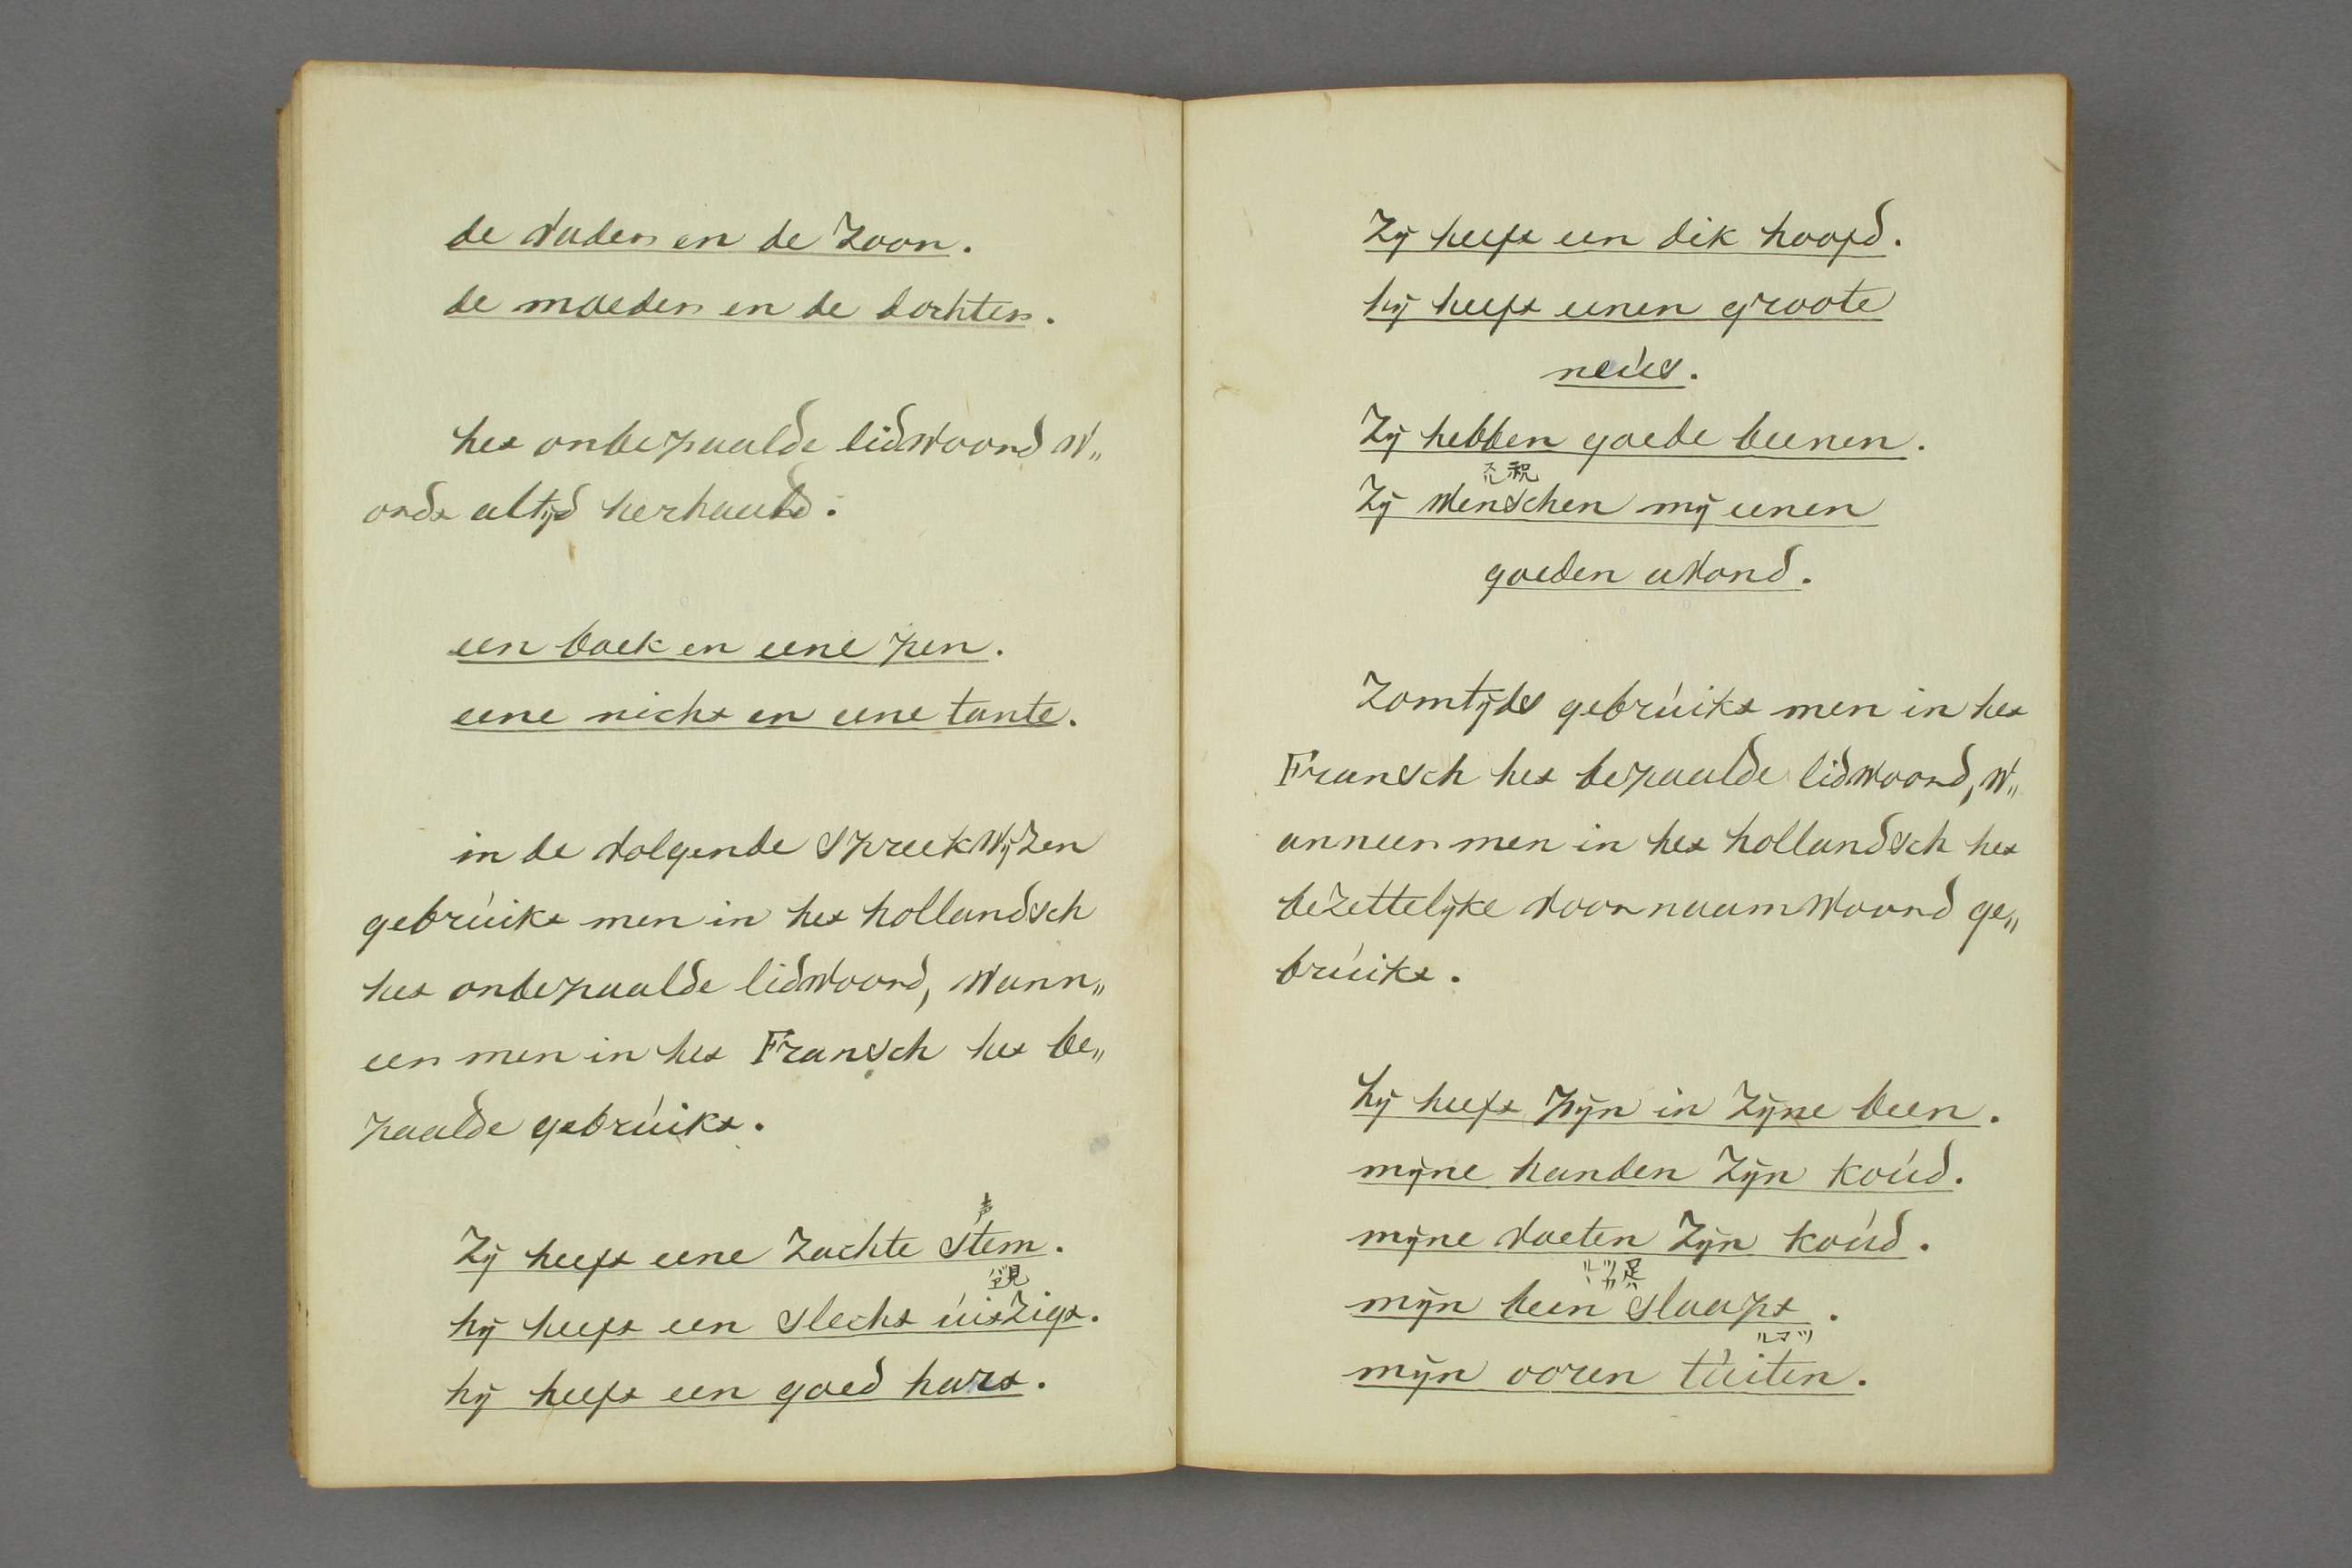 de vader en de Zoon.
de moeder en de dochter.
het onbepaalde lidwoord w„
ordt altÿd herhaald.
een boek en eene pen.
eene nicht en eene tante.
in de volgende spreekwÿzen
gebrúikt men in het hollandsch
het onbepaalde lidwoord, wann„
eer men in het Fransch het be„
paalde gebrúikt.
声
Zÿ heeft eene Zachte stem.
hÿ heeft een slecht úitzigt.
hÿ heeft een goed hart.
Zÿ heeft een dik hoofd.
hÿ heeft eenen groote
neús.
Zÿ hebben goede beenen.
祝
Zÿ wenschen mÿ eenen
goeden avond.
Zomtÿds gebrúikt men in het
Fransch het bepaalde lidwoord, w„
anneer men in het hollandsch het
bezettelÿke voornaamwoord ge„
brúikt.
hÿ heeft pÿn in Zÿne been.
mÿne handen Zÿn koúd.
mÿne voeten Zÿn koúd.
足
mÿn been slaapt.
mÿn ooren túiten.